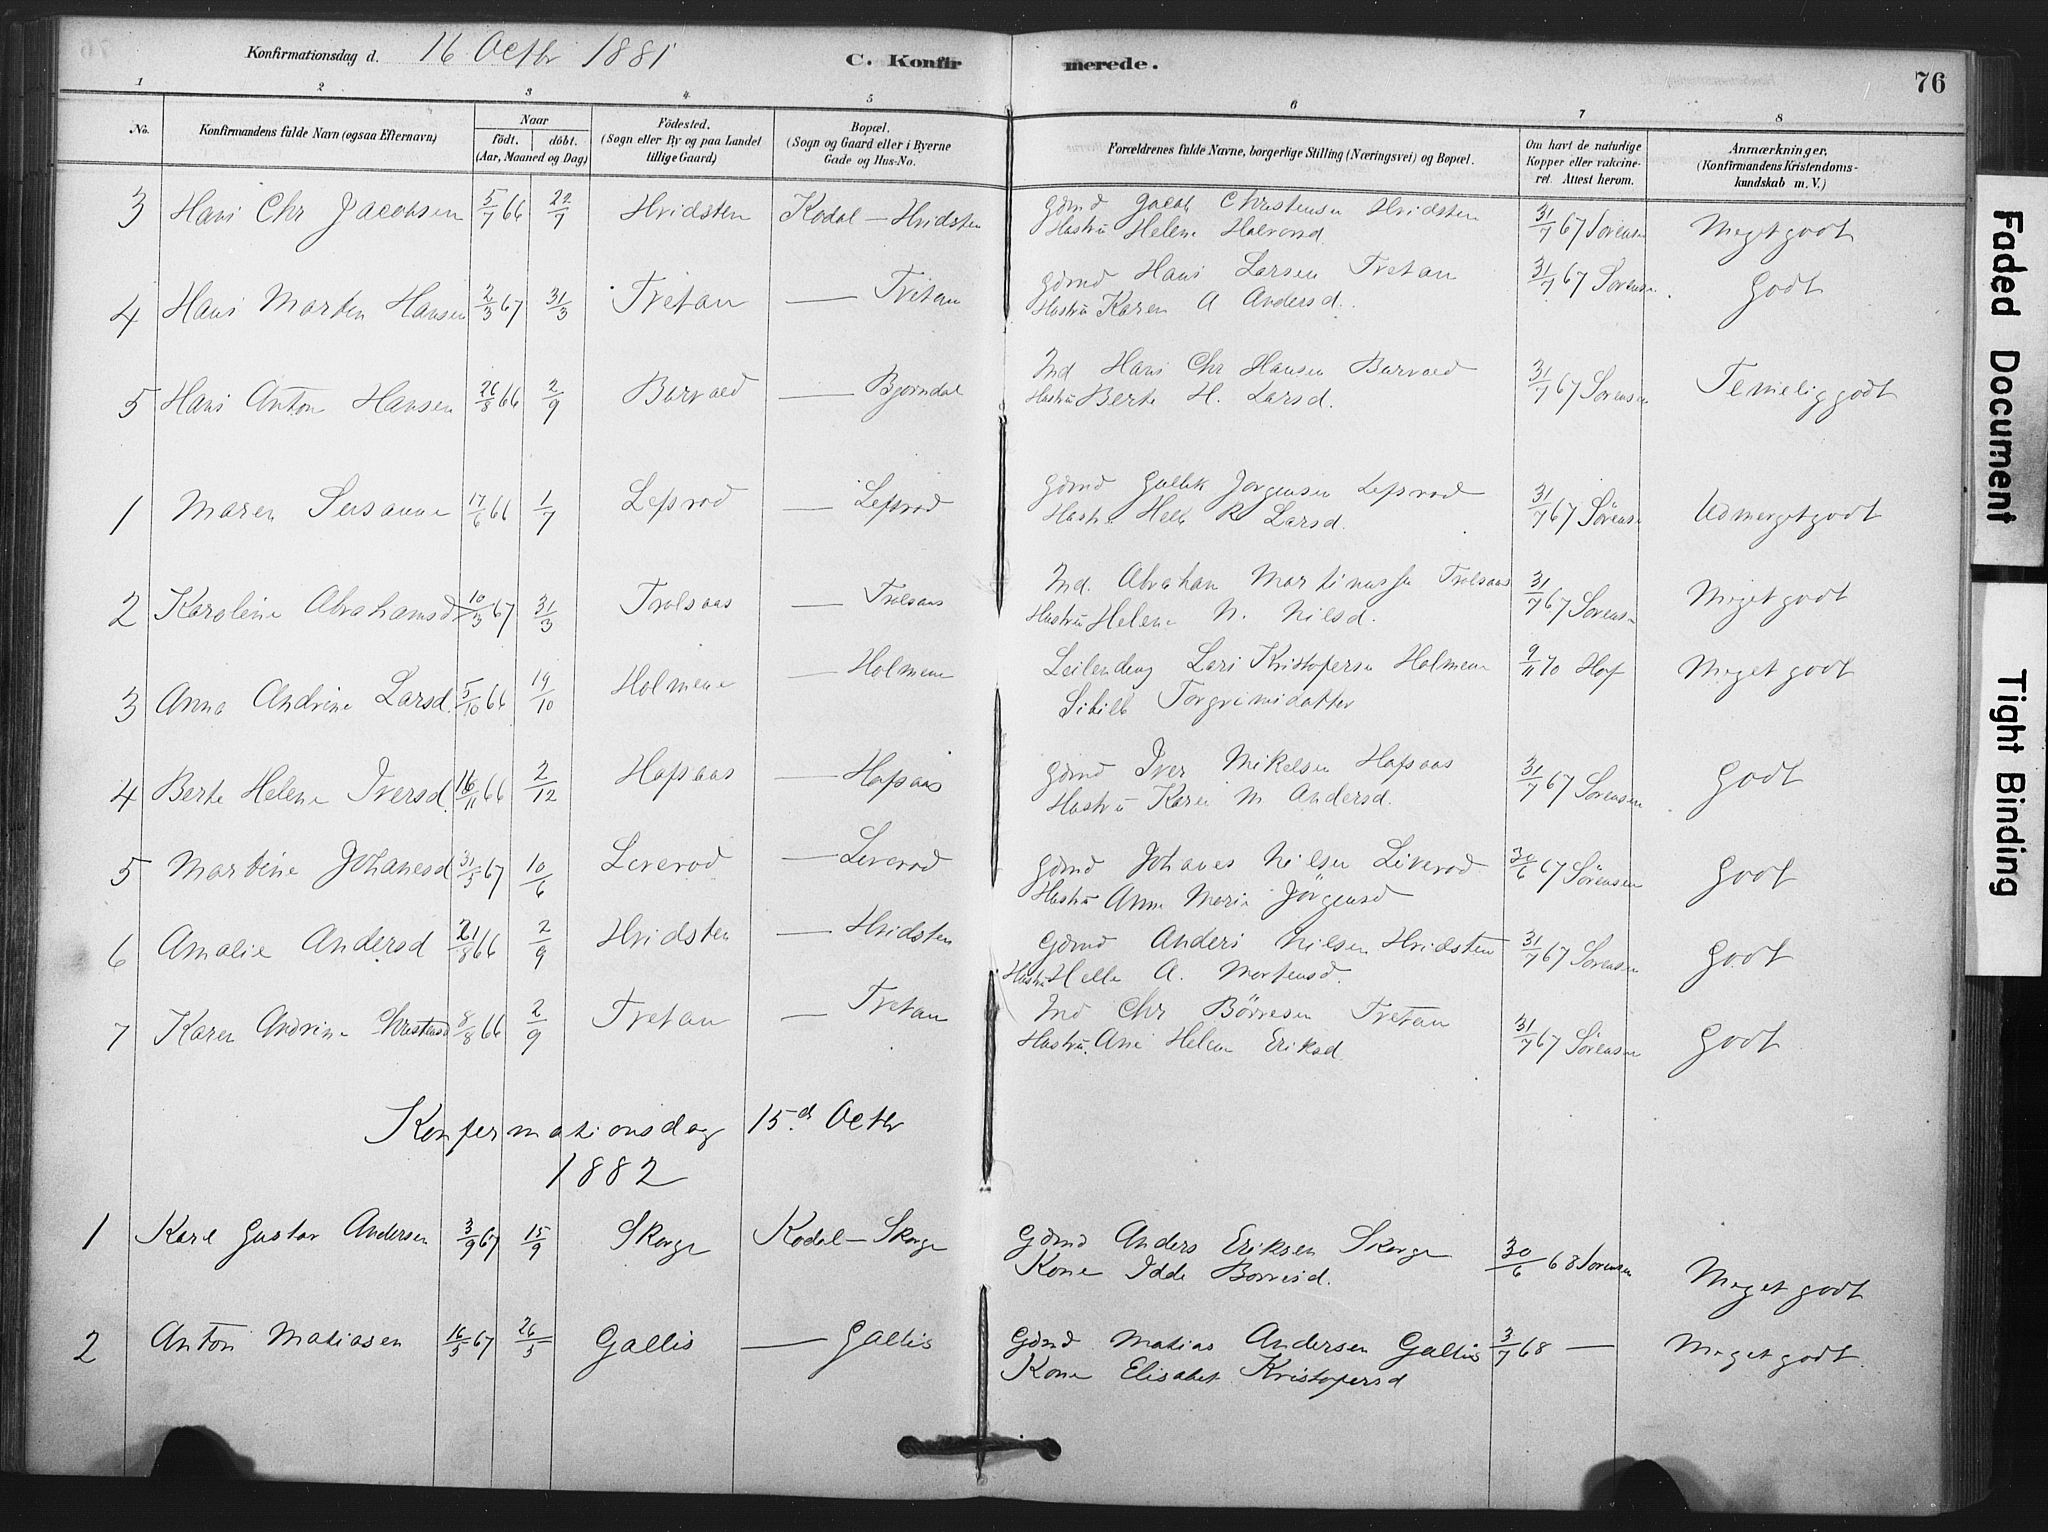 Konfirmationsdag d. 16 Octbr 1881 C. Konfirmerede. 76
1 2 3 4 5 6 7 8
No. Konfirmandens fulde Navn (ogsaa Efternavn) Naar födt. döbt. (Aar, Maaned og Dag) Födested. (Sogn eller By og paa Landet tillige Gaard) Bopæl. (Sogn og Gaard eller i Byerne Gade og Hus-No. Forældrenes fulde Navne, borgerlige Stilling (Næringsvei) og Bopæl. Om havt de naturlige Kopper eller vakcineret. Attest herom. Anmærkninger, (Konfirmandens Kristendomskundskab m. V.)
3 Hans Chr Jacobsen 5/7 66 22/7 Hvidsten Kodal — Hvidsten Gdmd Jacob Christensen Hvidsten 31/7 67 Sørensen Meget godt
Hustru Helene Halvorsd.
4 Hans Marten Hansen 2/3 67 31/3 Tretan — Tretan Gdmd Hans Larsen Tretan 31/7 67 Sorensen. Godt
Hustru Karen A Andersd.
5 Hans Anton Hansen 26/8 66 2/9 Barvaed — Bjorndal Ind Hans Chr Hansen Barvaed 31/7 67 Sørensen Temelig godt
Hustru Berte H. Larsd.
1 Maren Susanne 17/6 66 1/7 Lefsrod — Lefsrod Gdmd Gullik Jorgensen Lefsrod 31/7 67 Sørensn Udmerget godt
Hustru Helle R Larsd.
2 Karoline Abrahamsd 10/3 67 31/3 Trolsaas — Trolsaas Ind. Abraham Martinussen Trolsaas 31/7 67 Sorensn Meget godt
Hustru Helene N. Nilsd.
3 Anna Andrine Larsd. 5/10 66 19/10 Holmene — Holmene Leilending Lars Kristofersen Holmene 9/11 70 Hof Meget godt
Sibille Torgrimsdatter
4 Berte Helene Iversd. 16/11 66 2/12 Hafsaas — Hafsaas Gdmd Iver Mikelsen Hafsaas 31/7 67 Sørensen Godt
Hustru Karen M Andersd.
5 Martine Johanesd 31/5 67 10/6 Leverod — Leverod Gdmd Johanes Nilsen Leverod 30/6 67 Sørensen Godt
Hustru Anne Marie Jörgensd
6 Amalie Andersd 21/8 66 2/9 Hvidsten — Hvidsten Gdmd Anders Nilsen Hvidsten 31/7 67 Sørensen Godt
Hustru Helle A. Mortensd.
7 Karen Andrine Christensd 8/8 66 2/9 Tretan — Tretan Ind Chr Börresen Tretan 31/7 67 Sörensen Godt
Hustru. Ane Helene Eriksd.
Konfermationsdag 15.d Octbr
1882
1 Karl Gustav Andersen 3/9 67 15/9 Skorge Kodal — Skorge Gdmd Anders Eriksen Skorge 30/6 68 Sorensen Meget godt
Kone Idde Borresd.
2 Anton Matiasen 16/5 67 26/5 Gallis — Gallis Gdmd Matias Andersen Gallis 3/7 68 — Meget godt.
Kone Elisabet Kristofersd
Faded Document
Tight Binding